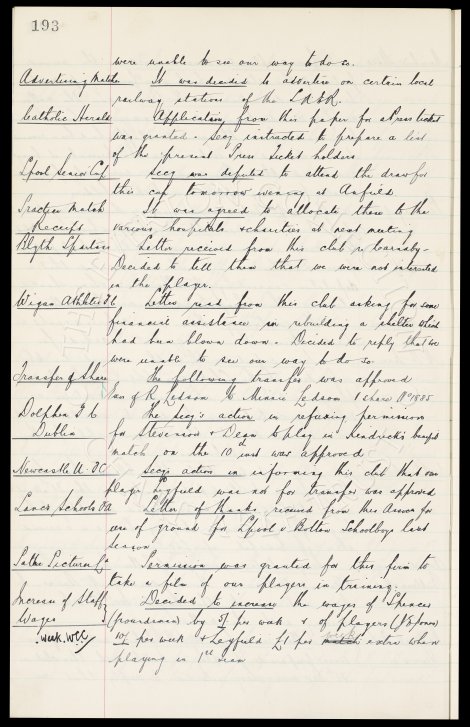 193
were unable to see our way to do so.
Advertising Matches It was decided to advertise on certain local
railway stations of the
Catholic Herald Application from this paper for a Press ticket
was granted - Secy instructed to prepare a list
of the present Press Ticket holders
Lpool Senior Cup Secy was deputed to attend the draw for
this cup tomorrow evening at Anfield
Practice Match It was agreed to allocate these to the
Receipts various hospitals & charities at next meeting
Blyth Spartans Letter received from this club re
Decided to tell them that we were not interested
in the player.
Wigan Athletic F C Letter read from this club asking for some
financial assistance in rebuilding a shelter which
had been blown down - Decided to reply that we
were unable to see our way to do so
Transfer of Share The following transfer was approved
of R Ledson to Minnie Ledson 1 share No 1885
Dolphin F C The secy's action in refusing permission
Dublin for Stevenson & Dean to play in Kendrick's benefit
match on the 10th inst was approved
Newcastle U. F C Secy's action in informing this club that our
player Leyfield was not for transfer was approved
Lancs Schools F A Letter of thanks received from this Assocn for
use of ground for Lpool v Bolton Schoolboys last
season
Pathe Pictures Ld Permission was granted for this firm to
take a film of our players in training.
Increase of Staff Decided to increase the wages of Spencer
Wages (groundsman) by 5/- per week & of players (J E Jones)
week. WCC 10/- per week & Leyfield £1 per extra when
playing in 1st team